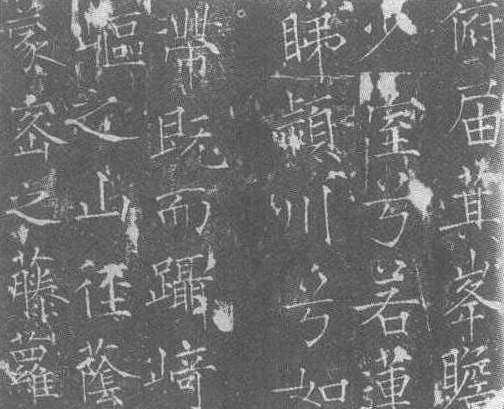 俯届箕峯瞻
少室兮若蓮
睇潁川兮如
滯既而躡崎
嶇之山徑蔭
蒙密之藤蘿